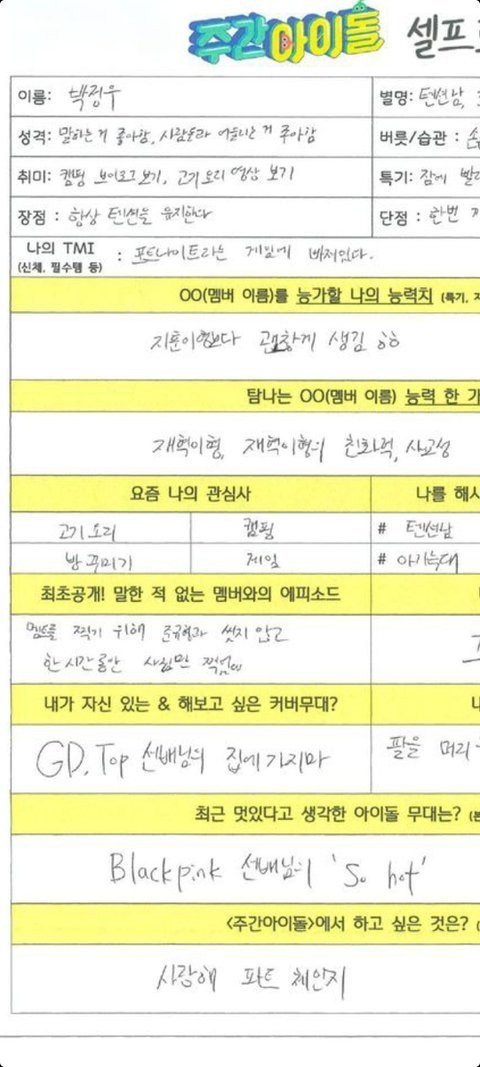 주간아이돌 셀프
이름: 박정우 별명: 텐션남,
성격: 말하는 거 좋아함, 사람들과 어울리는 거 좋아함 버릇/습관 : 손
취미: 캠핑 브이로그 보기, 고기 요리 영상 보기 특기: 잠에 빨리
장점 : 항상 텐션을 유지한다 단점 : 한번
나의 TMI
(신체, 필수템 등) : 포트나이트라는 게임에 빠져있다.
OO(멤버 이름)를 능가할 나의 능력치 (특기,
지훈이형보다 괜찮게 생김 ㅎㅎ
탐나는 OO(멤버 이름) 능력 한 가
재혁이형, 재혁이형의 친화력, 사교성
요즘 나의 관심사 나를 해시
고기 요리 캠핑 # 텐션남
방 꾸미기 게임 # 아기늑대
최초공개! 말한 적 없는 멤버와의 에피소드
멤트를 찍기 위해 준규형과 씻지 않고
한 시간동안 사진만 찍었다
내가 자신 있는 & 해보고 싶은 커버무대?
GD, Top 선배님의 집에 가지마 팔을 머리
최근 멋있다고 생각한 아이돌 무대는?
Blackpink 선배님의 'So hot'
<주간아이돌>에서 하고 싶은 것은?
사랑해 파트 체인지